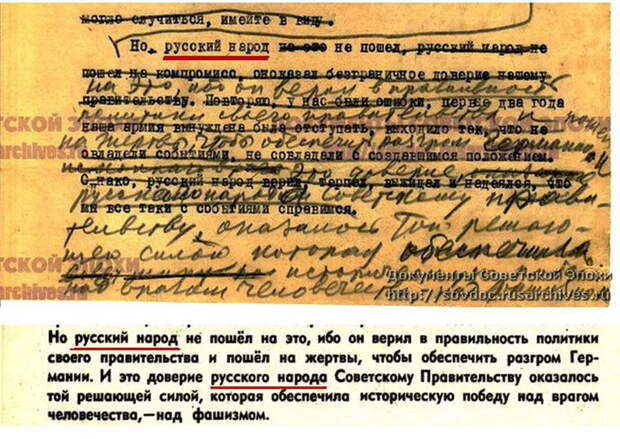 могло случиться, имейте в виду.
Но русский народ на это не пошел, русский народ не
пошел на компромисс, он оказал безграничное доверие нашему
на это, ибо он верил в правильность
правительству. Повторяю, у нас были ошибки, первые два года
политики своего правительства и пошел
наша армия вынуждена была отступать, выходило так, что не
на жертвы, чтобы обеспечить разгром Германии. И
овладели событиями, не совладали с создавшимся положением.
это доверие
Однако, русский народ верил, терпел, выжидал и надеялся, что
русского народа Советскому прави-
мы все таки с событиями справимся.
тельству оказалось той решаю-
щей силой которая обеспечила
историч
над врагом человечества, над фашизмом
ТСКОЙ ЭПОХИ
archives.ru
Документы Советской Эпохи
http://sovdoc.rusarchives.ru
Но русский народ не пошёл на это, ибо он верил в правильность политики
своего правительства и пошёл на жертвы, чтобы обеспечить разгром Гер-
мании. И это доверие русского народа Советскому Правительству оказалось
той решающей силой, которая обеспечила историческую победу над врагом
человечества,—над фашизмом.